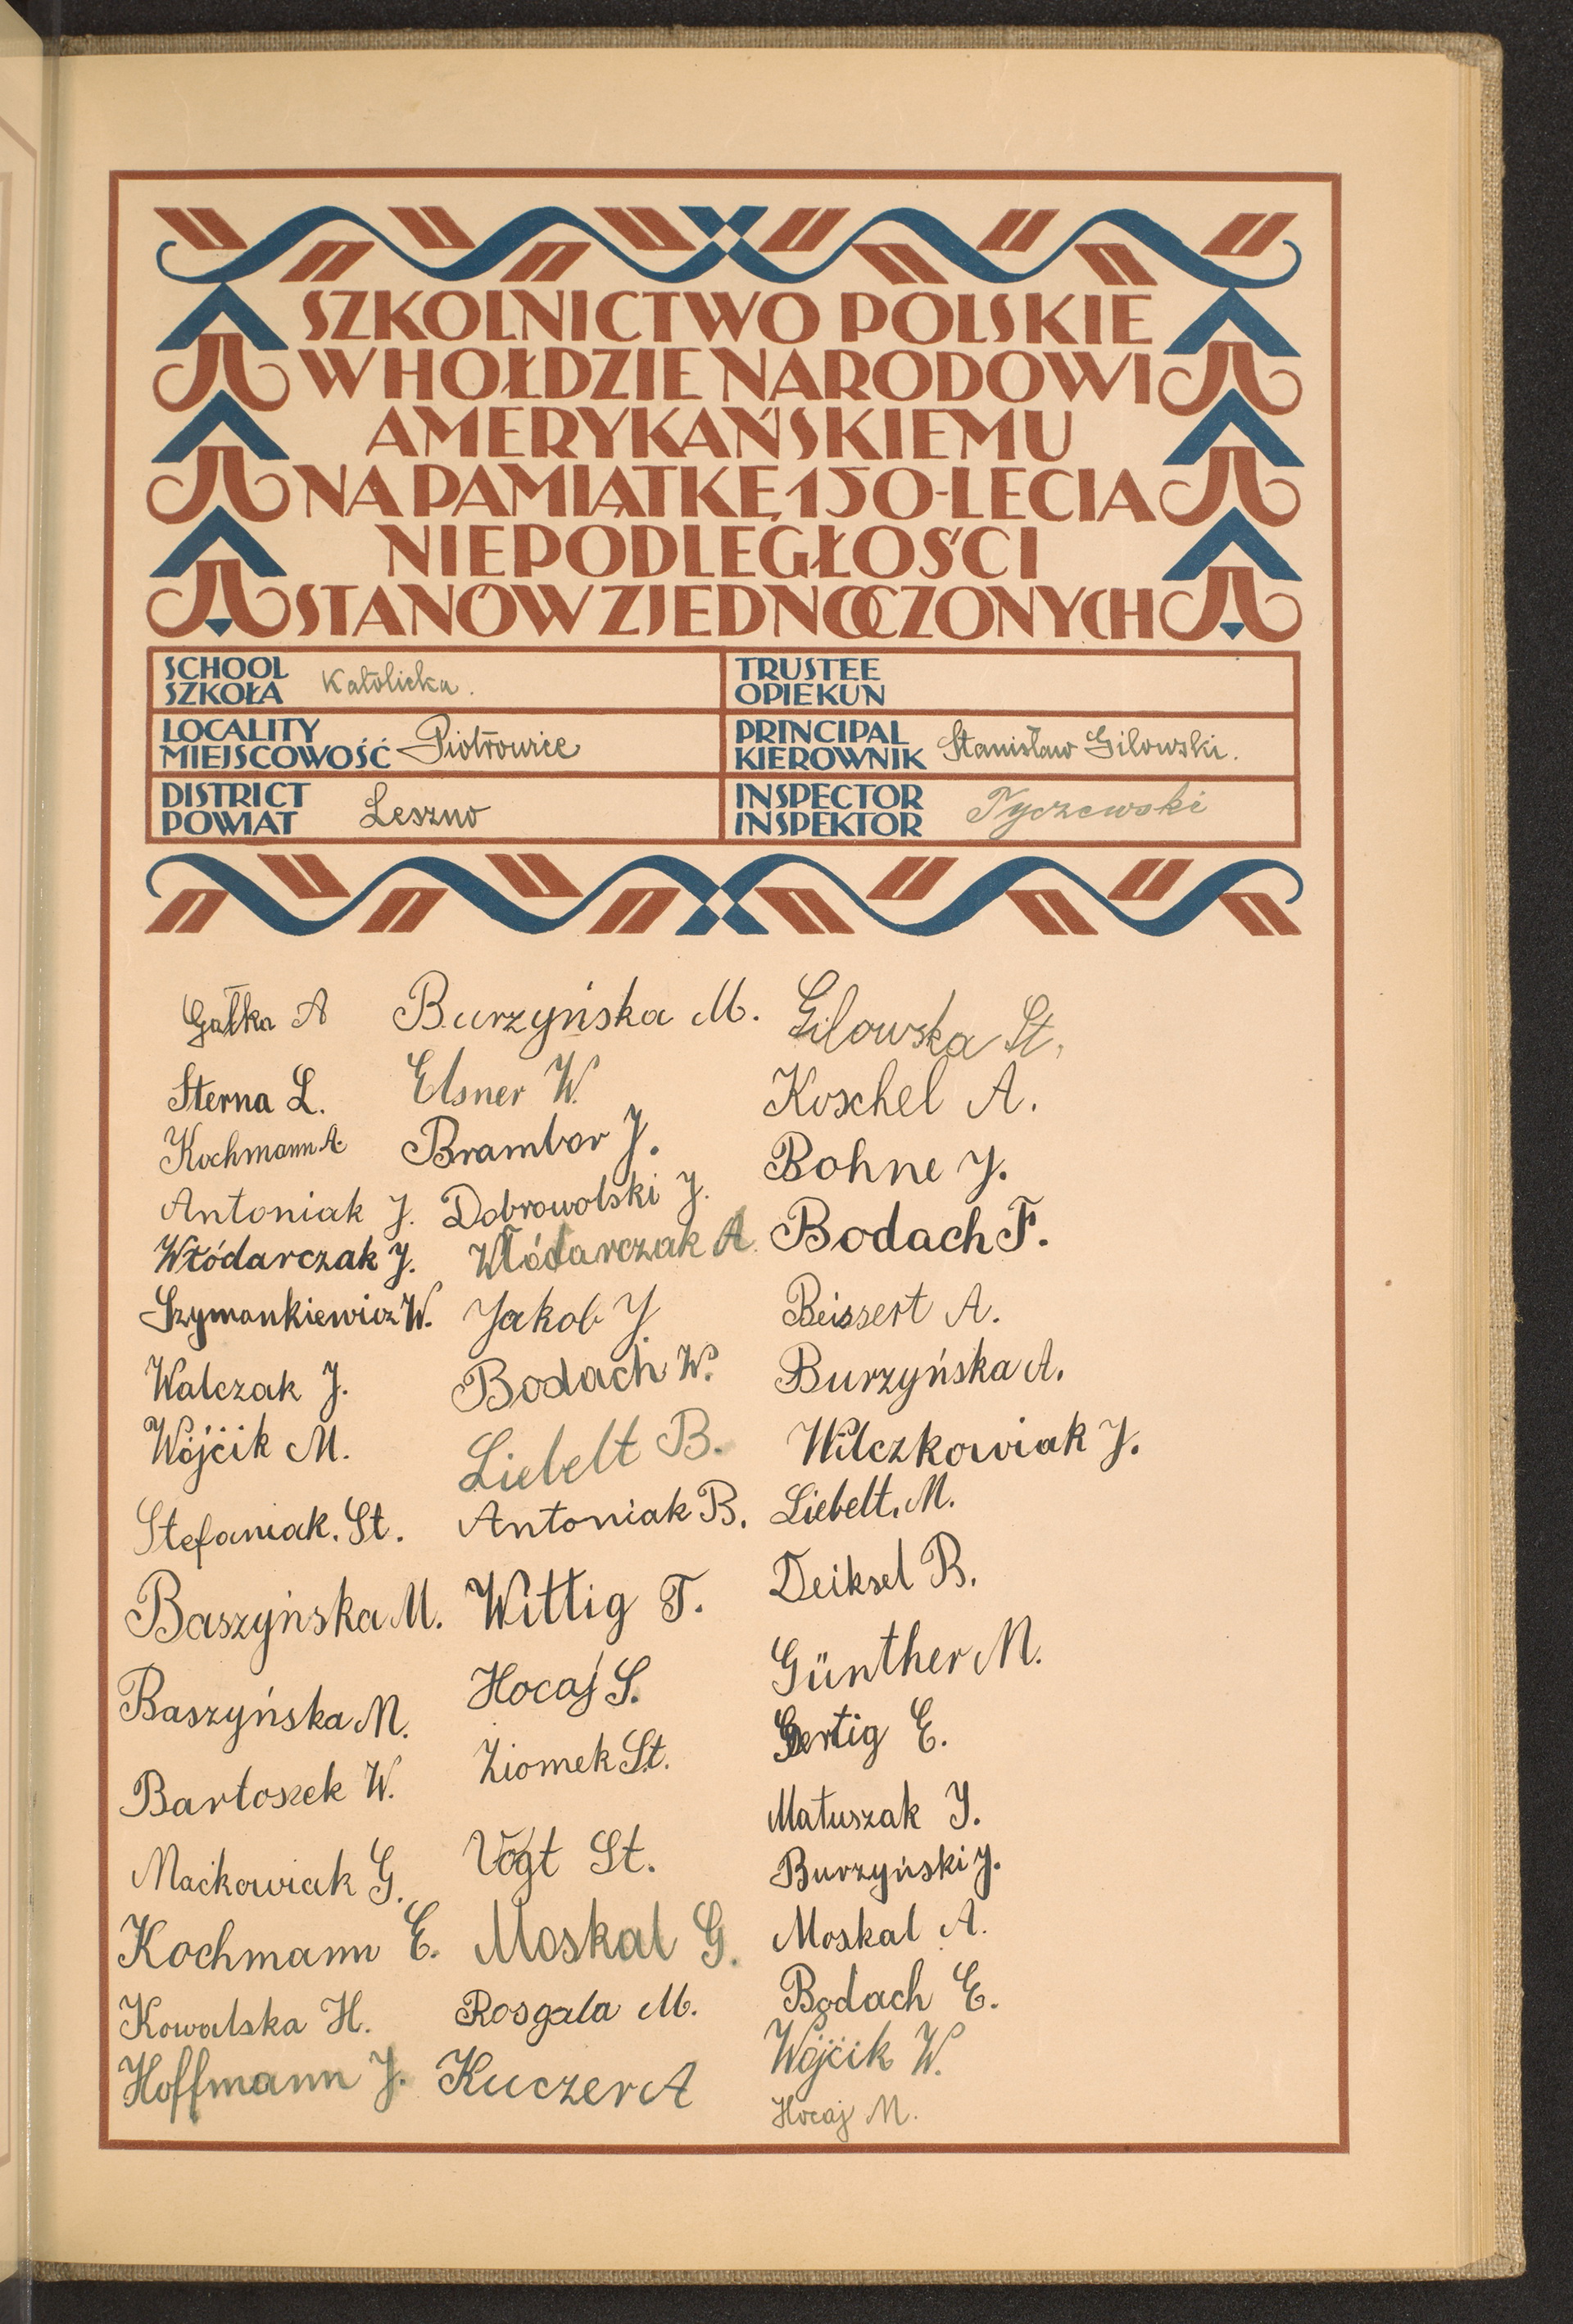 SZKOLNICTWO POLSKIE
W HOŁDZIE NARODOWI
AMERYKAŃSKIEMU
NA PAMIĄTKĘ 150-LECIA
NIEPODLEGŁOŚCI
STANÓW ZJEDNOCZONYCH
SCHOOL
SZKOŁA
Katolicka.
TRUSTEE
OPIEKUN
LOCALITY
MIEJSCOWOŚĆ
Piotrowice
PRINCIPAL
KIEROWNIK
Stanisław Gilowski.
DISTRICT
POWIAT
Leszno
INSPECTOR
INSPEKTOR
Tyczewski
Gałka A
Sterna L.
Kochmann A.
Antoniak J.
Włódarczak J.
Szymankiewicz W.
Walczak J.
Wójcik M.
Stefaniak. St.
Baszyńska M.
Baszyńska M.
Bartoszek W.
Maćkowiak G.
Kochmann E.
Kowalska H.
Hoffmann J.
Burzyńska M.
Elsner W.
Brambor J.
Dobrowolski J.
Włódarczak A.
Jakob J.
Bodach W.
Liebelt B.
Antoniak B.
Wittig T.
Hocaj S.
Ziomek St.
Vogt St.
Moskal G.
Rosgala M.
Kuczer A
Gilowska St.
Koschel A.
Bohne J.
Bodach F.
Beissert A.
Burzyńska A.
Wilczkowiak J.
Liebelt. M.
Deiksel B.
Günther M.
Gertig E.
Matuszak J.
Burzyński J.
Moskal A.
Bodach E.
Wójcik W.
Hocaj M.